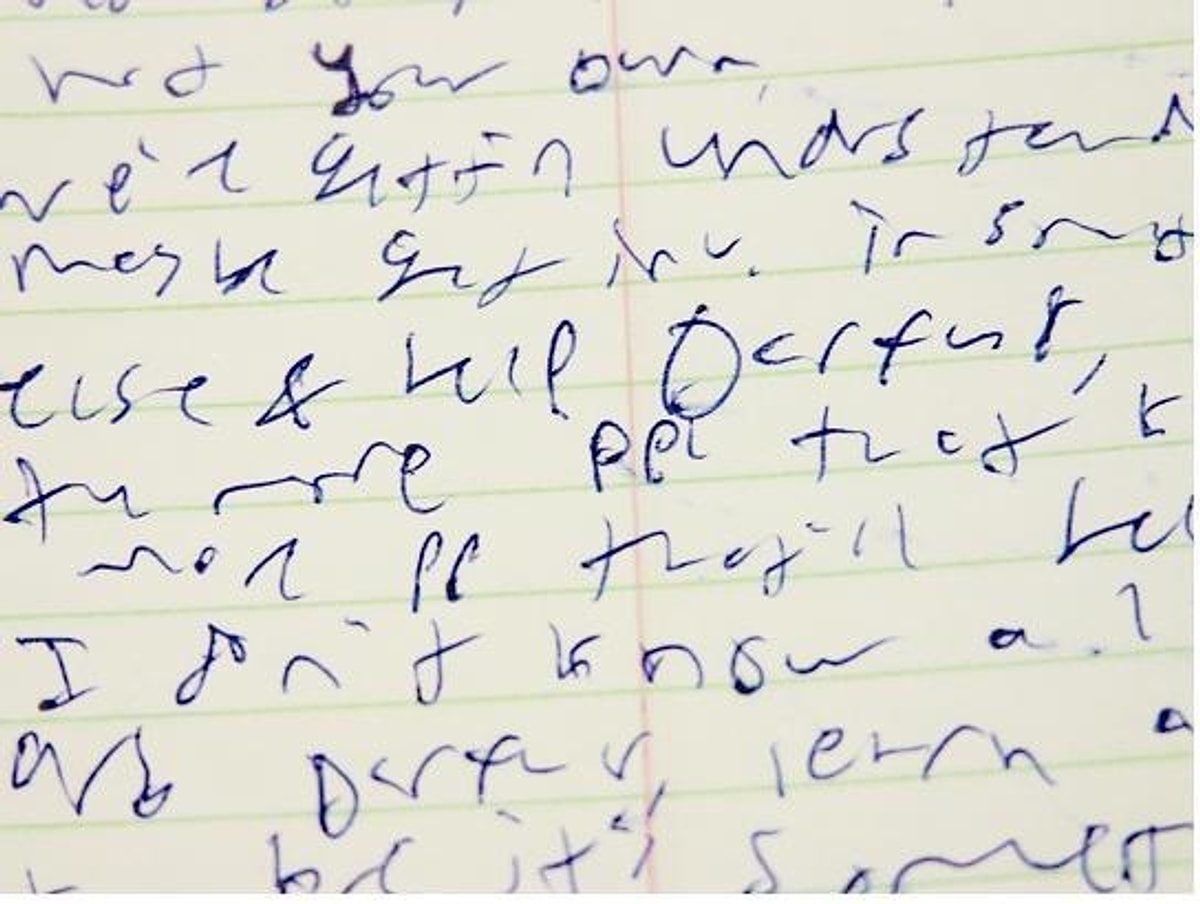 not your own
we'r gettin undrstand
maybe get inv. in smt
else & help Darfur,
the more ppl that k
mor pp they'll hel
I don't know a.l
Darfur, learn a
be it's somet